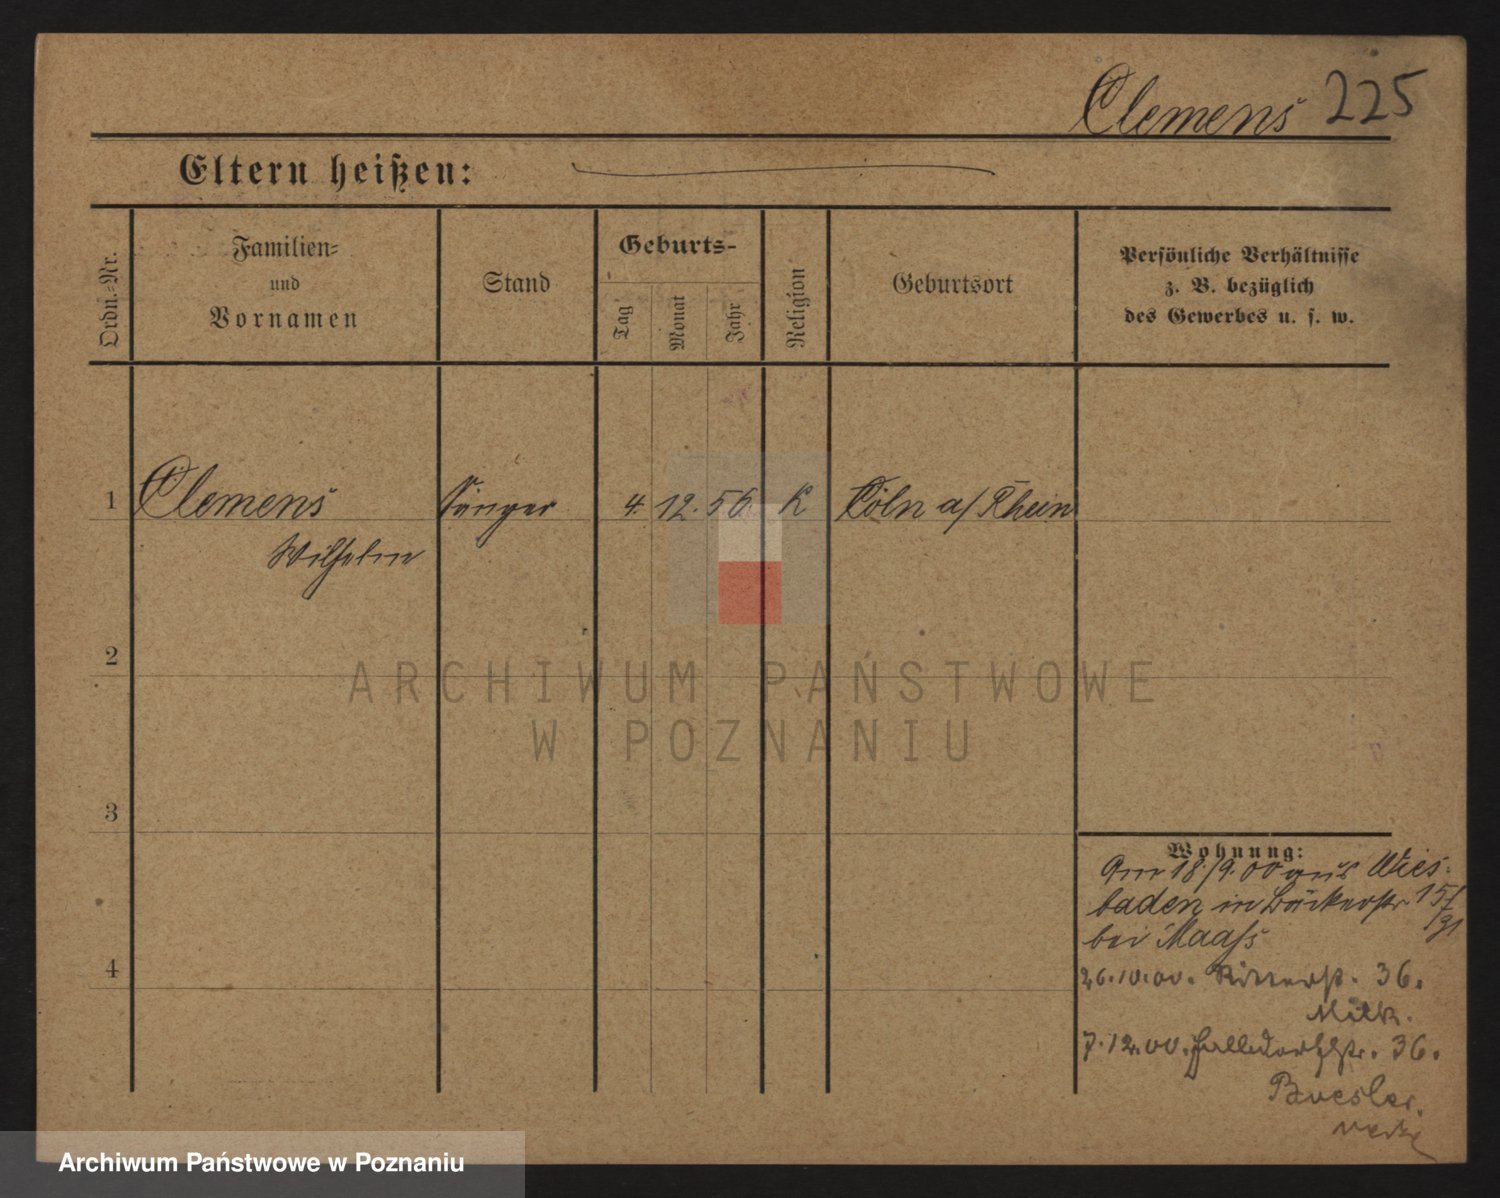 Clemens 225
Eltern heißen:
Ordn.-Nr.
Familien-
und
Vornamen
Stand
Geburts-
Tag
Monat
Jahr
Religion
Geburtsort
Persönliche Verhältnisse
z. B. bezüglich
des Gewerbes u. s. w.
1 Clemens Sänger 4. 12. 56. K Cöln a/ Rhein
Wilhelm
2
3
4
Wohnung:
Am 18./9.00 aus Wies-
baden in Bäckerstr. 15/
bei Maaß
26.10.00. Ritterst. 36.
7.12.00. 36.
ARCHIWUM PAŃSTWOWE
W POZNANIU
Archiwum Państwowe w Poznaniu